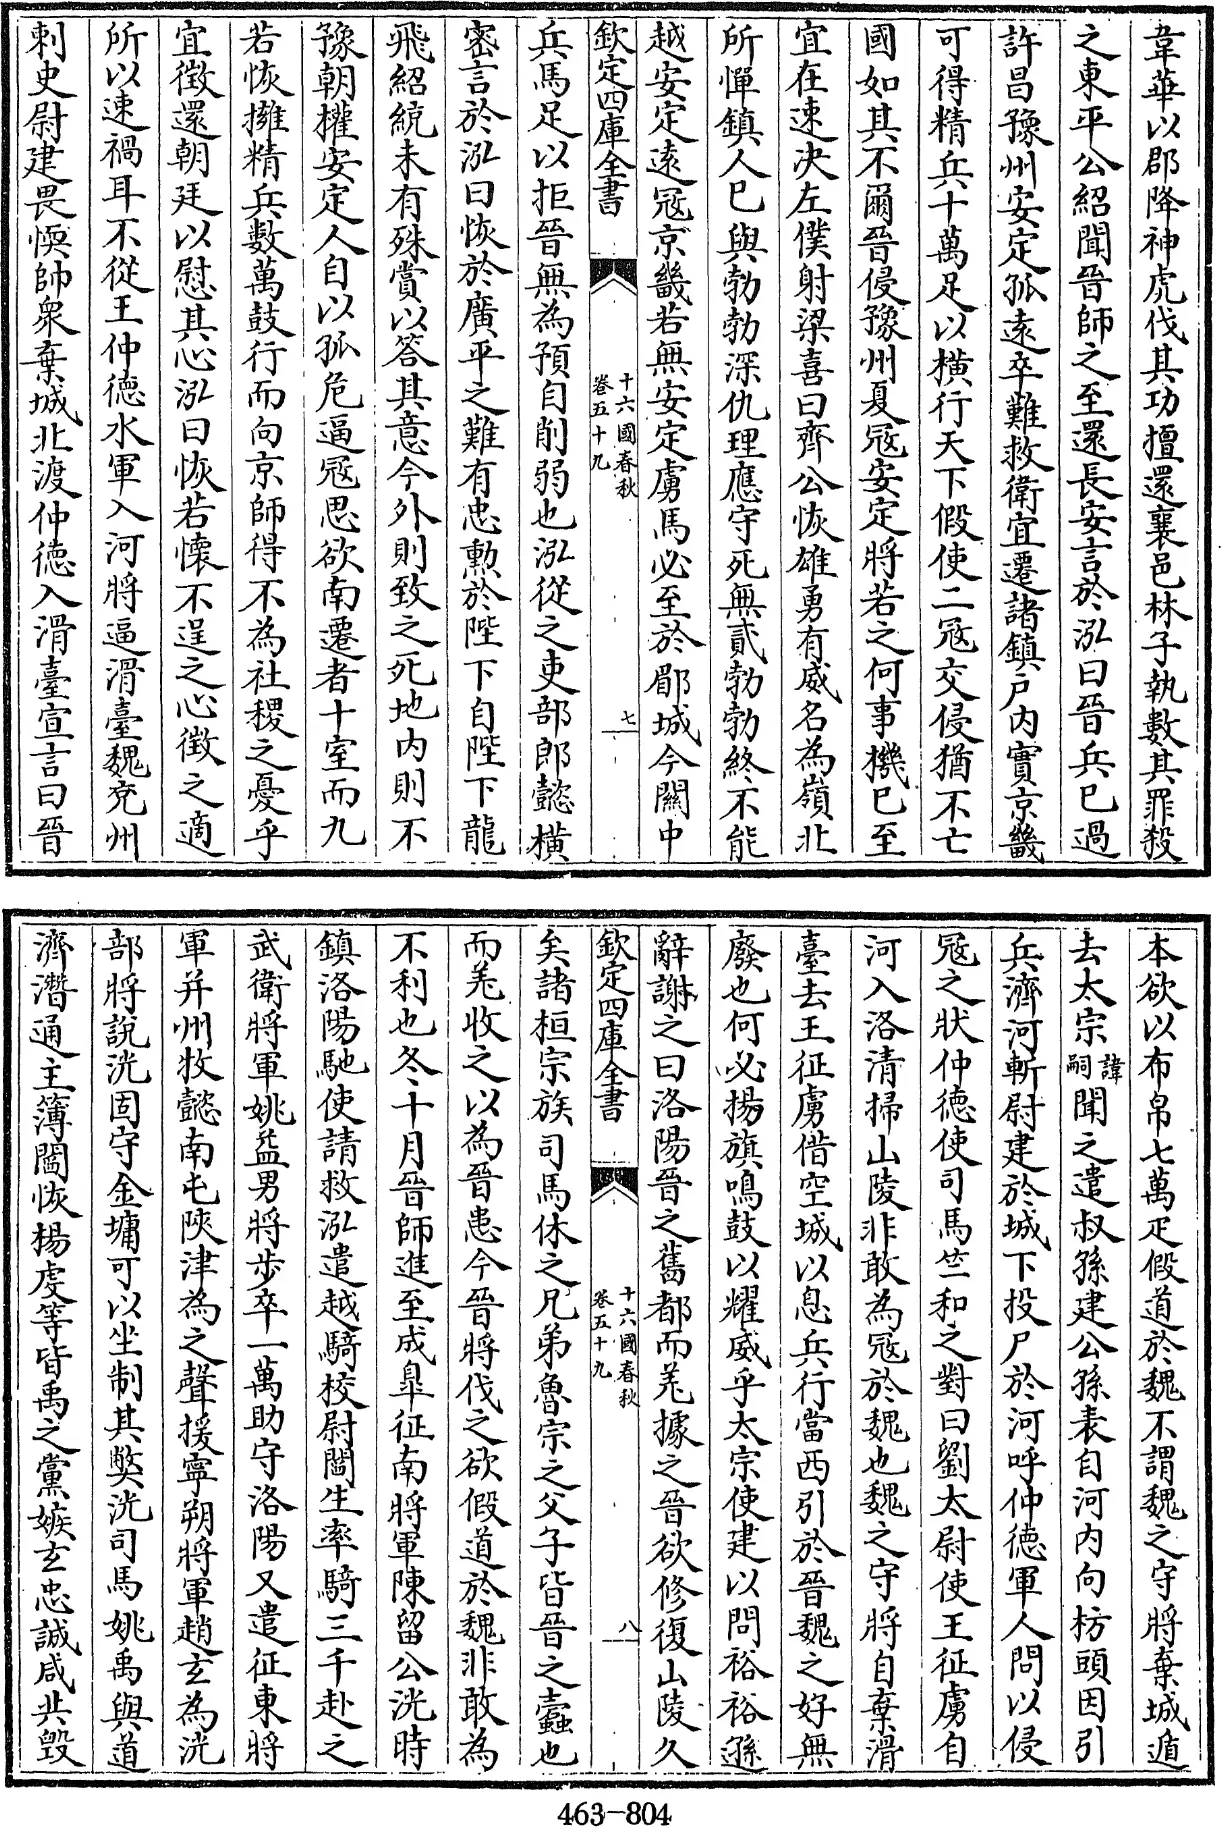 韋華以郡降神虎伐其功擅還襄邑林子執數其罪殺
之東平公紹聞晉師之至還長安言於泓曰晉兵已過
許昌豫州安定孤遠卒難救衛宜遷諸鎮户内實京畿
可得精兵十萬足以橫行天下假使二寇交侵猶不亡
國如其不爾晉侵豫州夏寇安定將若之何事機已至
宜在速决左僕射梁喜曰齊公恢雄勇有威名為嶺北
所憚鎮人已與勃勃深仇理應守死無貳勃勃終不能
越安定遠寇京畿若無安定虜馬必至於郿城今關中
欽定四庫全書
十六國春秋
卷五十九
七
兵馬足以拒晉無為預自削弱也泓從之吏部郎懿橫
密言於泓曰恢於廣平之難有忠勲於陛下自陛下龍
飛紹統未有殊賞以答其意今外則致之死地内則不
豫朝權安定人自以孤危逼寇思欲南遷者十室而九
若恢擁精兵數萬鼓行而向京師得不為社稷之憂乎
宜徵還朝廷以慰其心泓曰恢若懷不逞之心徵之適
所以速禍耳不從王仲德水軍入河將逼滑臺魏兗州
刺史尉建畏愞帥衆棄城北渡仲德入滑臺宣言曰晉
本欲以布帛七萬疋假道於魏不謂魏之守將棄城遁
去太宗諱嗣聞之遣叔孫建公孫表自河内向枋頭因引
兵濟河斬尉建於城下投尸於河呼仲德軍人問以侵
寇之狀仲德使司馬竺和之對曰劉太尉使王征虜自
河入洛清掃山陵非敢為寇於魏也魏之守將自棄滑
臺去王征虜借空城以息兵行當西引於晉魏之好無
廢也何必揚旗鳴鼓以耀威乎太宗使建以問裕裕遜
辭謝之曰洛陽晉之舊都而羌據之晉欲修復山陵久
欽定四庫全書
十六國春秋
卷五十九
八
矣諸桓宗族司馬休之兄弟魯宗之父子皆晉之蠹也
而羌收之以為晉患今晉將伐之欲假道於魏非敢為
不利也冬十月晉師進至成臯征南將軍陳留公洸時
鎮洛陽馳使請救泓遣越騎校尉閻生率騎三千赴之
武衛將軍姚益男將步卒一萬助守洛陽又遣征東將
軍并州牧懿南屯陜津為之聲援寧朔將軍趙玄為洸
部將説洸固守金墉可以坐制其弊洸司馬姚禹與道
濟潛通主簿閻恢楊虔等皆禹之黨嫉玄忠誠咸共毁
463-804